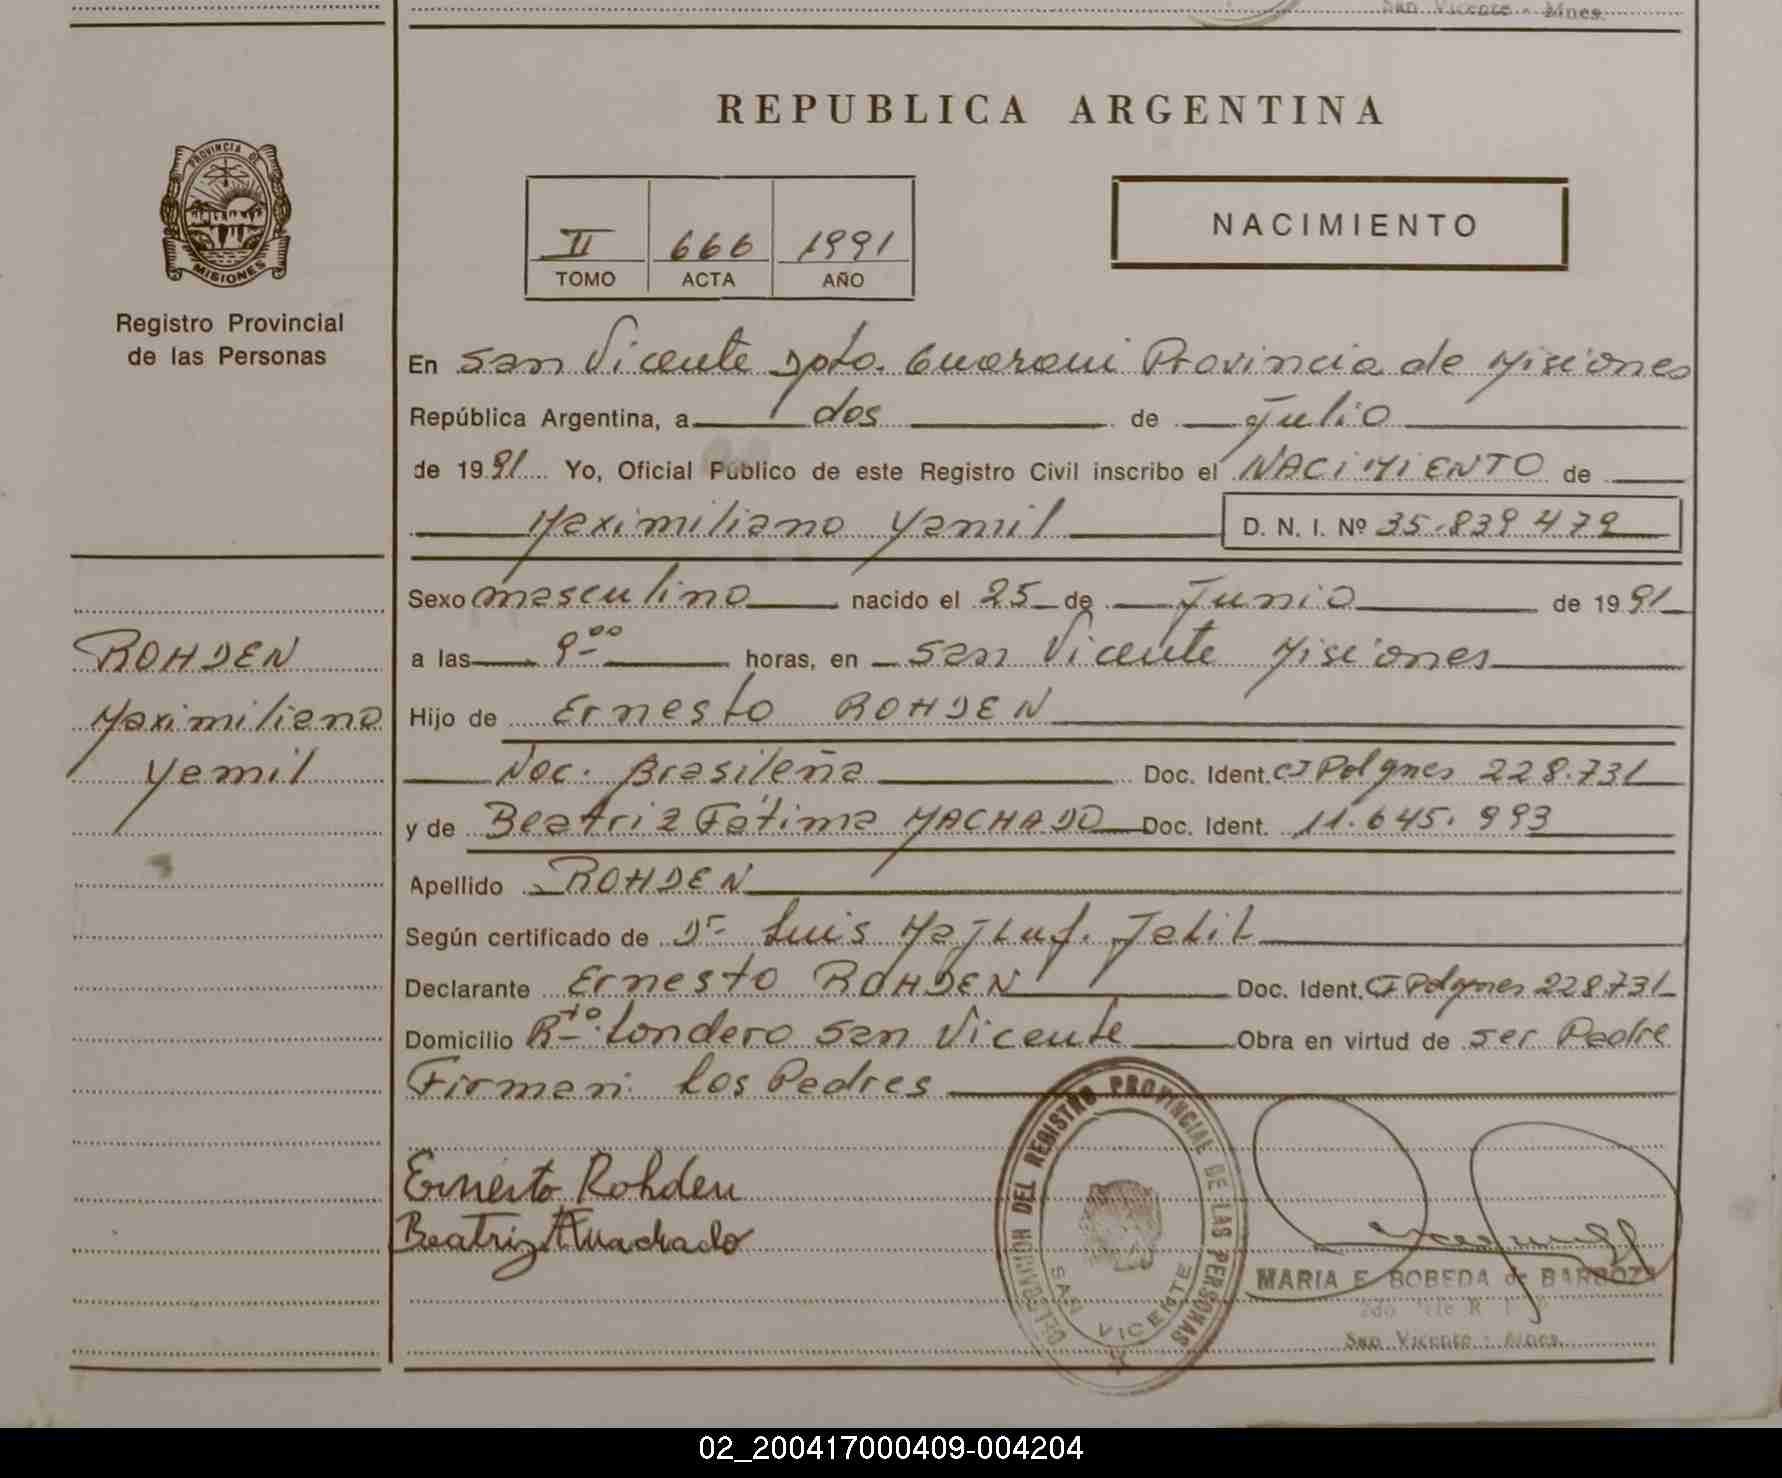 San Vicente - Mnes.
REPUBLICA ARGENTINA
PROVINCIA DE
MISIONES
Registro Provincial
de las Personas
II 666 1991
TOMO ACTA AÑO
NACIMIENTO
En San Vicente Dpto. Guarani Provincia de Misiones
República Argentina, a dos de Julio
de 1991 Yo, Oficial Público de este Registro Civil inscribo el NACIMIENTO de
Maximiliano Yamil D. N. I. Nº 35.839.479
Sexo masculino nacido el 25 de Junio de 1991
a las 9-00 horas, en San Vicente Misiones
ROHDEN
Maximiliano
Yamil
Hijo de Ernesto ROHDEN
Nac. Brasileña Doc. Ident. CI Pol gnes 228.731
y de Beatriz Fátima MACHADO Doc. Ident. 11.645.993
Apellido ROHDEN
Según certificado de Dr Luis Jalil
Declarante Ernesto ROHDEN Doc. Ident. CI Pol gnes 228.731
Domicilio Rto. Londero San Vicente Obra en virtud de ser Padre
Firman: los Padres
Ernesto Rohden
Beatriz F Machado
DELEGACION DEL REGISTRO PROVINCIAL DE LAS PERSONAS
SAN VICENTE
MARIA E. BOBEDA de BARBOZA
San Vicente - Mnes.
02_200417000409-004204